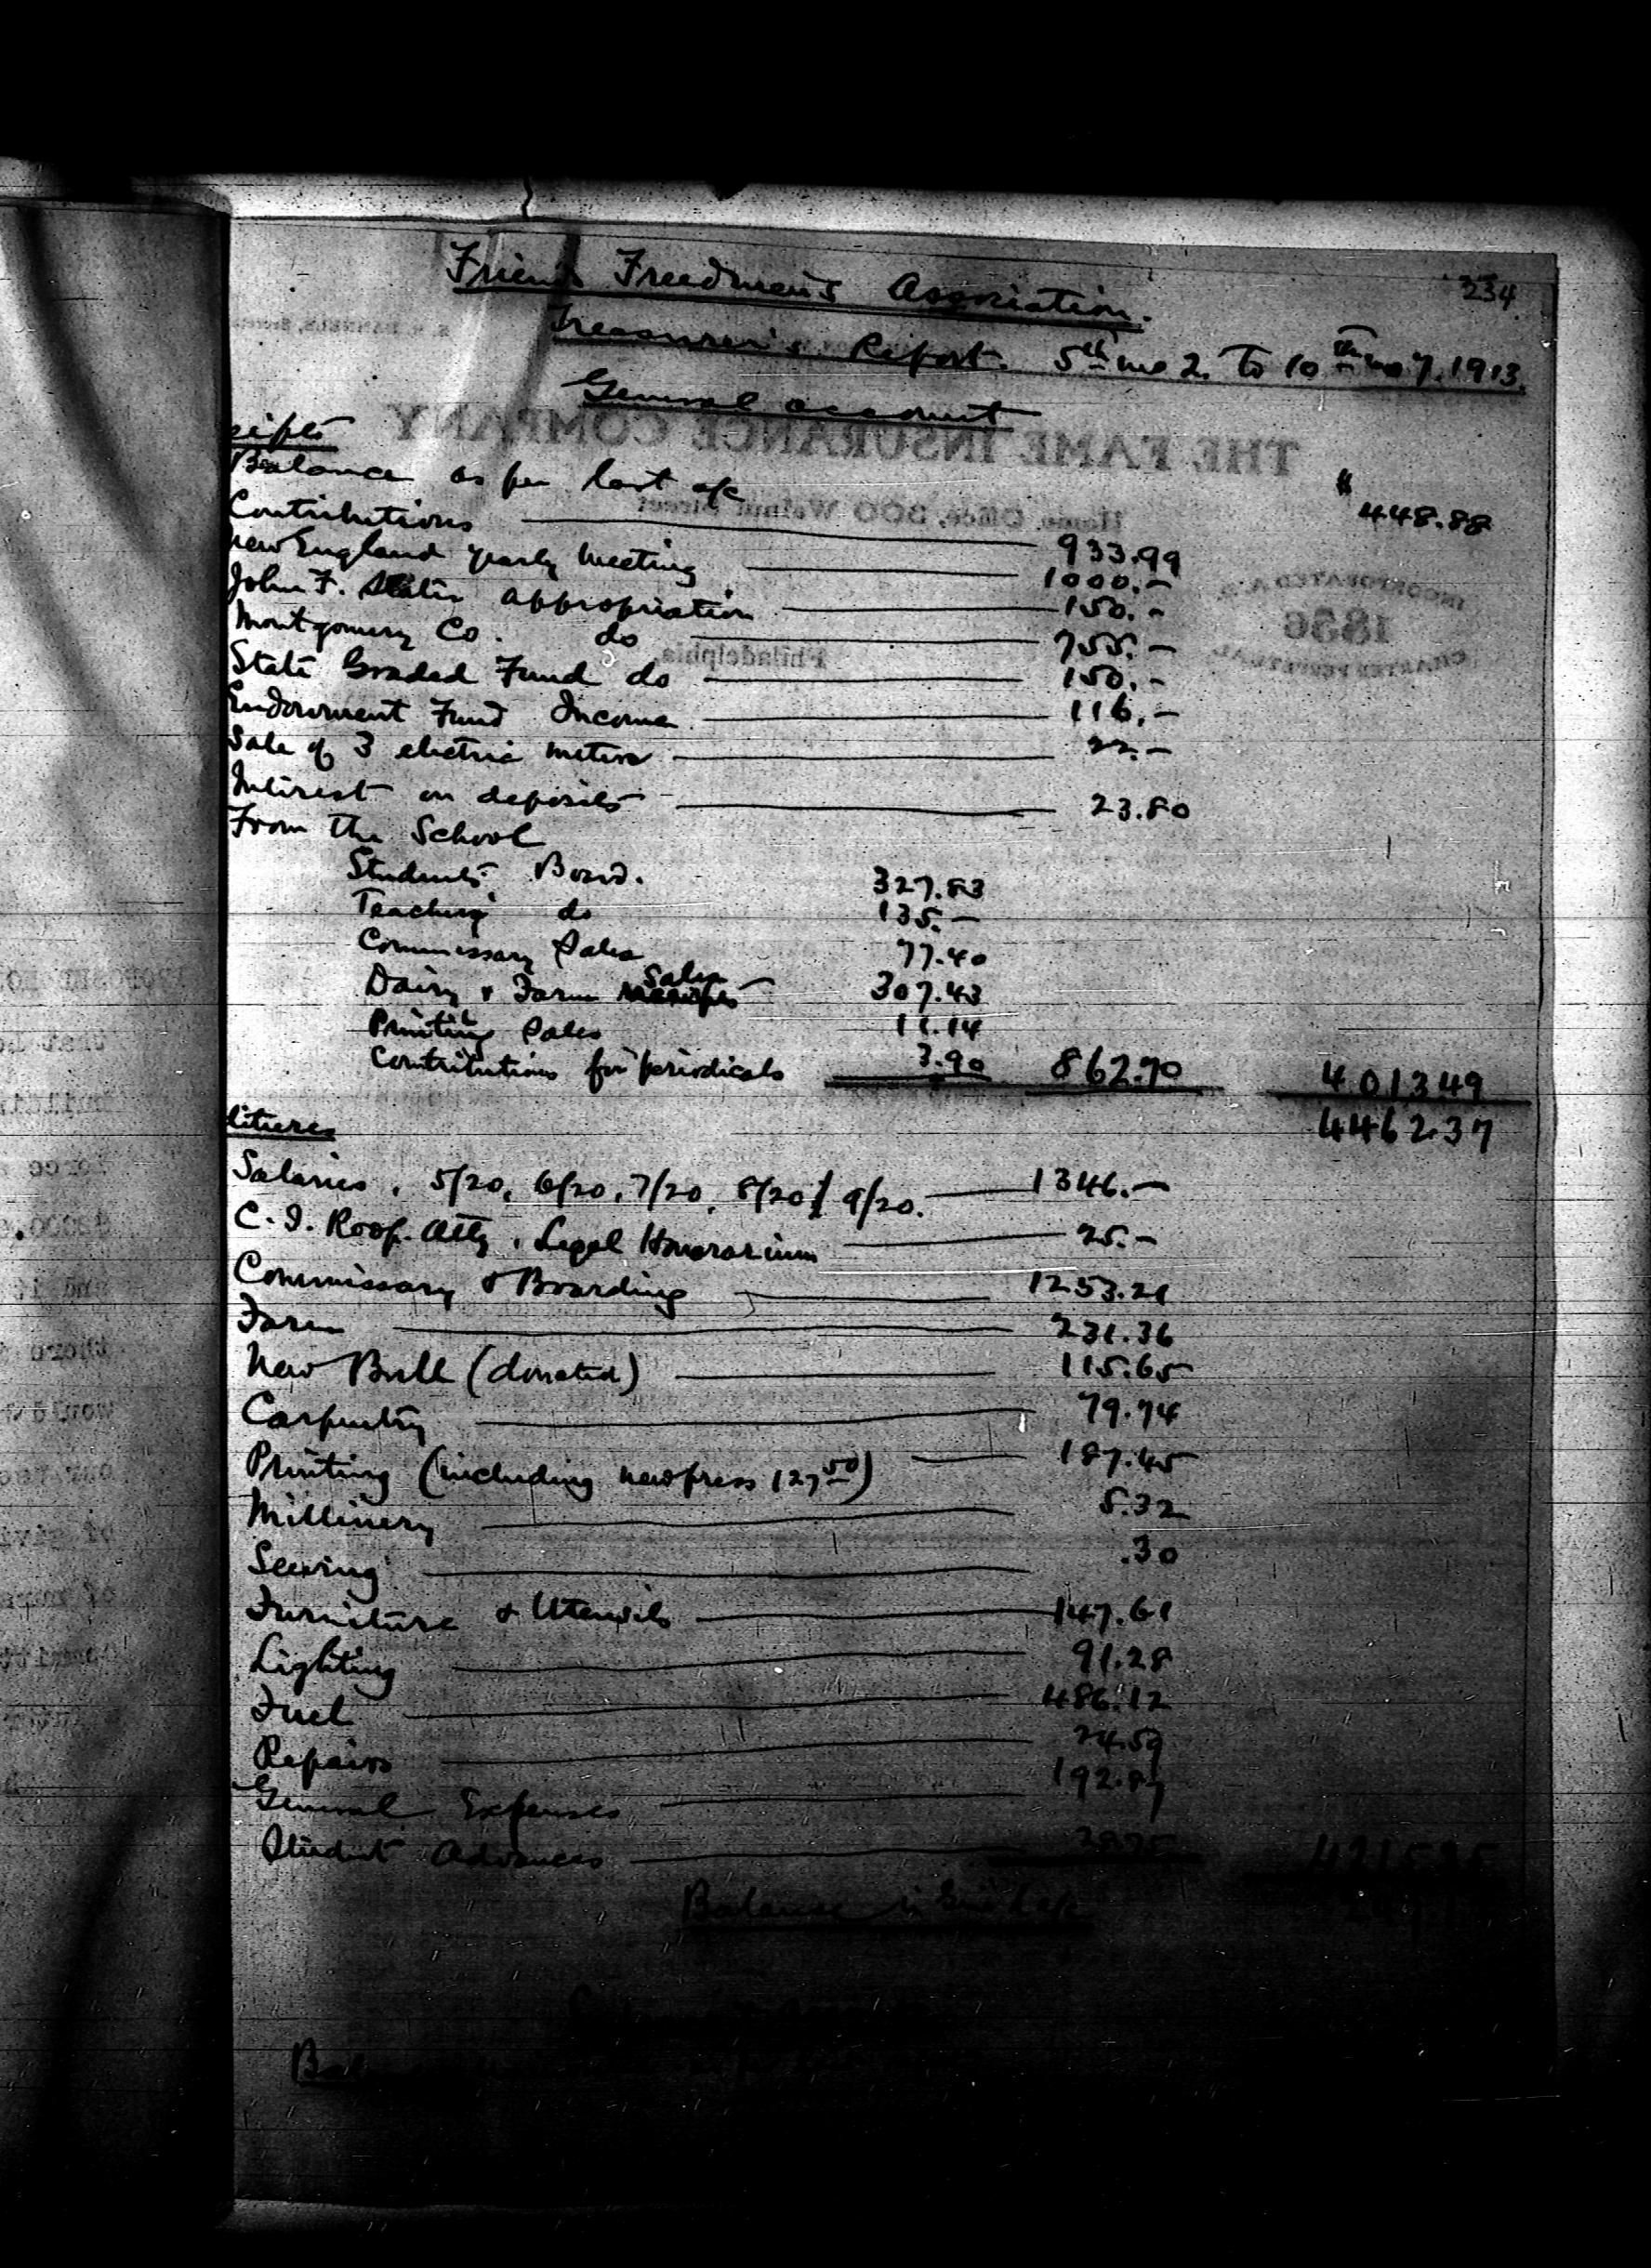 234
Friends Freedmen's Association.
Treasurer's Report. 5th mo 2. To 10th mo 7. 1913.
General account
eipts
Balance as per last a/c $ 448.88
Contributions 933.99
New England Yearly Meeting 1000.-
John F. Slater appropriation 150.-
Montgomery Co. do 755.-
State Graded Fund do 150.-
Endowment Fund Income 116.-
Sale of 3 electric meters 22.-
Interest on deposits 23.80
From the School
Students' Board. 327.83
Teachers' do 135.-
Commissary Sales 77.40
Dairy & Farm Sales 307.43
Printing Sales 11.14
Contributions for periodicals 3.90 862.70 401349
4462.37
ditures
Salaries, 5/20, 6/20, 7/20, 8/20, 9/20. 1346.-
C. I. Roop. Atty, Legal Honorarium 25.-
Commissary & Boarding 1253.21
Farm 231.36
New Bull (donated) 115.65
Carpentry 79.74
Printing (including new press 127 50) 187.45
Millinery 5.32
Sewing .30
Furniture & Utensils 147.61
Lighting 91.28
Fuel 486.12
Repairs 24.59
General Expenses 192.87
Student Advances 28.75 421525
Balance in
THE FAME INSURANCE COMPANY
Home Office, 300 Walnut Street
Philadelphia
INCORPORATED A.D.
1856
CHARTER PERPETUAL